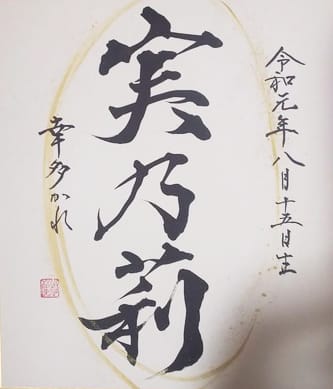 令和元年八月十五日生
実乃莉
幸多かれ